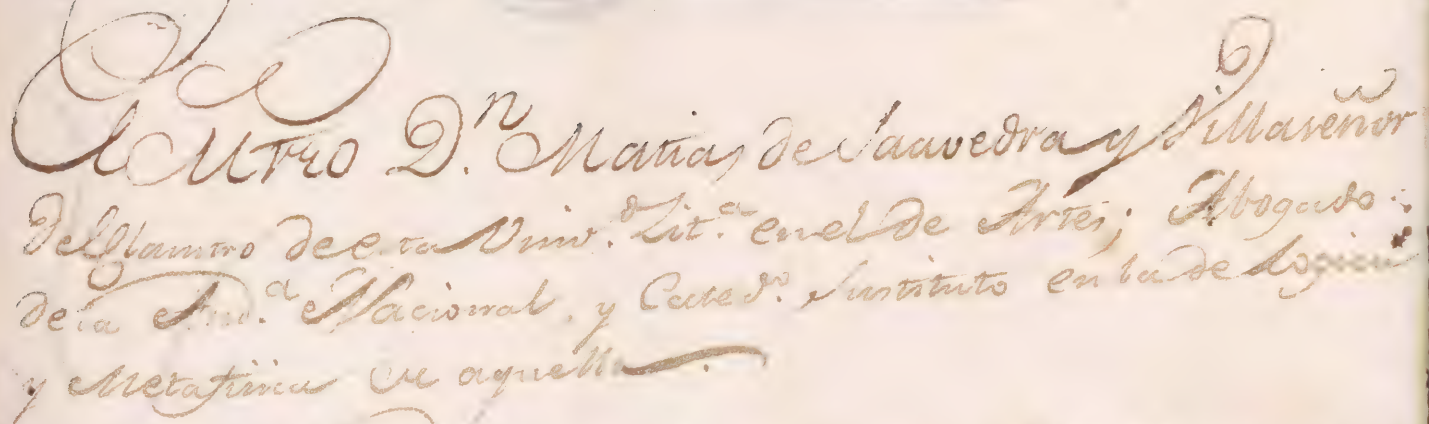 El Mtro D.n Matias de Saavedra y Villaseñor
del Claustro de esta Univ.d Lit.a en el de Artes; Abogado
de la Aud.a Nacional, y Cated.o Sustituto en la de Logica
y Metafisica de aquella.